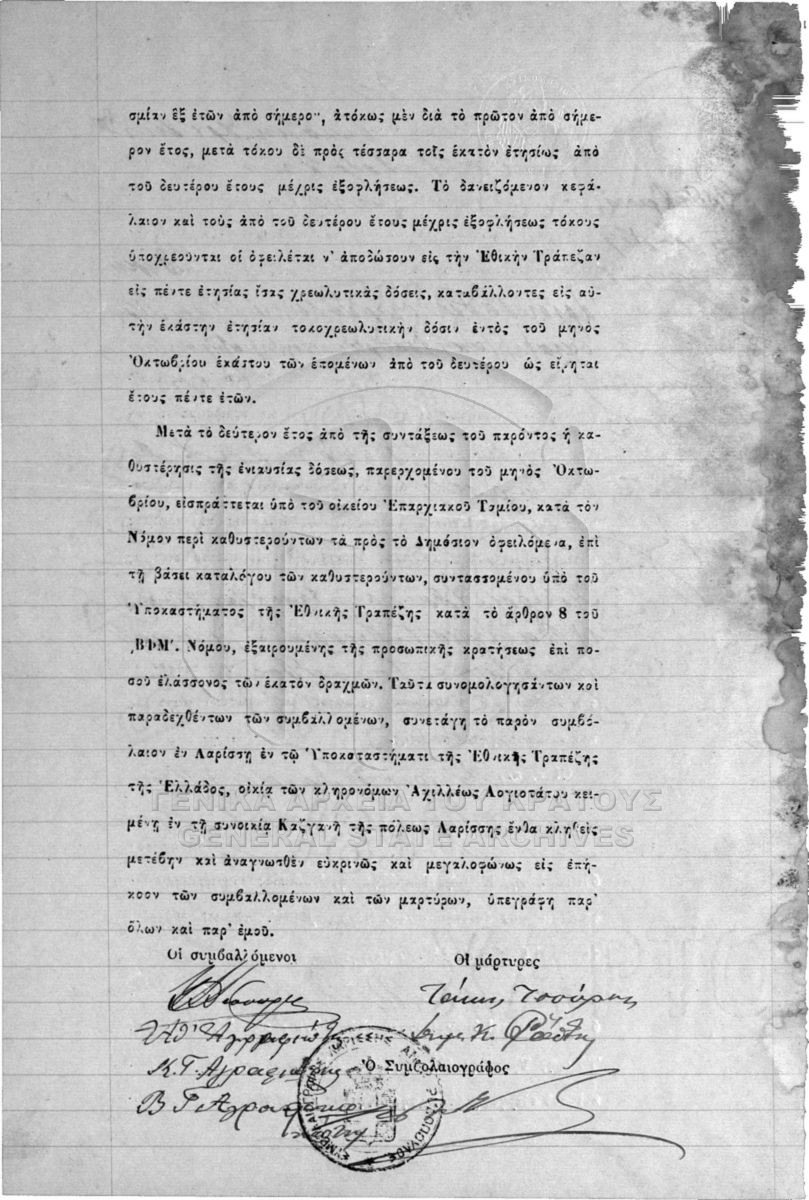 σμίαν ἓξ ἐτῶν ἀπὸ σήμερον, ἀτόκως μὲν διὰ τὸ πρῶτον ἀπὸ σήμε-
ρον ἔτος, μετὰ τόκου δὲ πρὸς τέσσαρα τοῖς ἑκατὸν ἐτησίως ἀπὸ
τοῦ δευτέρου ἔτους μέχρις ἐξοφλήσεως. Τὸ δανειζόμενον κεφά-
λαιον καὶ τοὺς ἀπὸ τοῦ δευτέρου ἔτους μέχρις ἐξοφλήσεως τόκους
ὑποχρεοῦνται οἱ ὀφειλέται ν' ἀποδώσουν εἰς τὴν Ἐθικὴν Τράπεζαν
εἰς πέντε ἐτησίας ἴσας χρεωλυτικὰς δόσεις, καταβάλλοντες εἰς αὐ-
τὴν ἑκάστην ἐτησίαν τοκοχρεωλυτικὴν δόσιν ἐντὸς τοῦ μηνὸς
Ὀκτωβρίου ἑκάστου τῶν ἑπομένων ἀπὸ τοῦ δευτέρου ὡς εἴρηται
ἔτους πέντε ἐτῶν.
Μετὰ τὸ δεύτερον ἔτος ἀπὸ τῆς συντάξεως τοῦ παρόντος ἡ κα-
θυστέρησις τῆς ἐνιαυσίας δόσεως, παρερχομένου τοῦ μηνὸς Ὀκτω-
βρίου, εἰσπράττεται ὑπὸ τοῦ οἰκείου Ἐπαρχιακοῦ Ταμίου, κατὰ τὸν
Νόμον περὶ καθυστερούντων τὰ πρὸς τὸ Δημόσιον ὀφειλόμενα, ἐπὶ
τῇ βάσει καταλόγου τῶν καθυστερούντων, συντασσομένου ὑπὸ τοῦ
Ὑποκαστήματος τῆς Ἐθνικῆς Τραπέζης κατὰ τὸ ἄρθρον 8 τοῦ
͵ΒΦΜʹ. Νόμου, ἐξαιρουμένης τῆς προσωπικῆς κρατήσεως ἐπὶ πο-
σοῦ ἐλάσσονος τῶν ἑκατὸν δραχμῶν. Ταῦτα συνομολογησάντων καὶ
παραδεχθέντων τῶν συμβαλλομένων, συνετάγη τὸ παρὸν συμβό-
λαιον ἐν Λαρίσσῃ ἐν τῷ Ὑποκαταστήματι τῆς Ἐθνικῆς Τραπέζης
τῆς Ἑλλάδος, οἰκίᾳ τῶν κληρονόμων Ἀχιλλέως Λογιοτάτου κει-
ΓΕΝΙΚΑ ΑΡΧΕΙΑ ΤΟΥ ΚΡΑΤΟΥΣ
μένῃ ἐν τῇ συνοικίᾳ Καζγανῆ τῆς πόλεως Λαρίσσης ἔνθα κληθεὶς
GENERAL STATE ARCHIVES
μετέβην καὶ ἀναγνωσθὲν εὐκρινῶς καὶ μεγαλοφώνως εἰς ἐπή-
κοον τῶν συμβαλλομένων καὶ τῶν μαρτύρων, ὑπεγράφη παρ'
ὅλων καὶ παρ' ἐμοῦ.
Οἱ συμβαλλόμενοι Οἱ μάρτυρες
Τάκης Τσάρης
Κ. Γ. Αγραφιώτης Ὁ Συμβολαιογράφος
Β Γ Αγραφιώτης